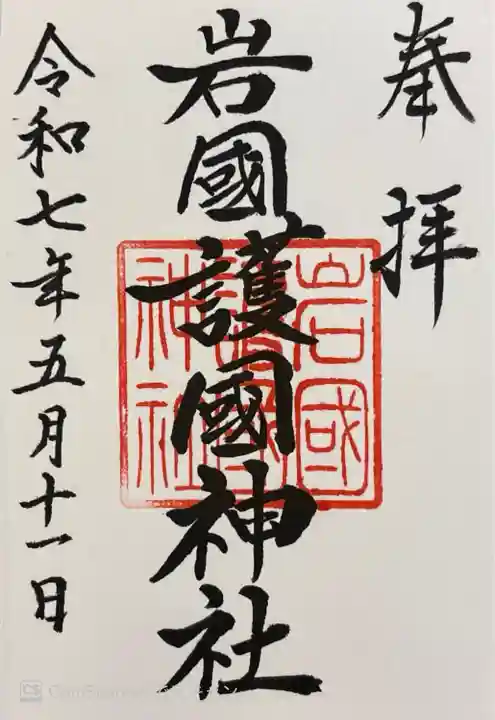 奉拝
岩國護國神社
岩國
護國
神社
令和七年五月十一日
CS CamScanner